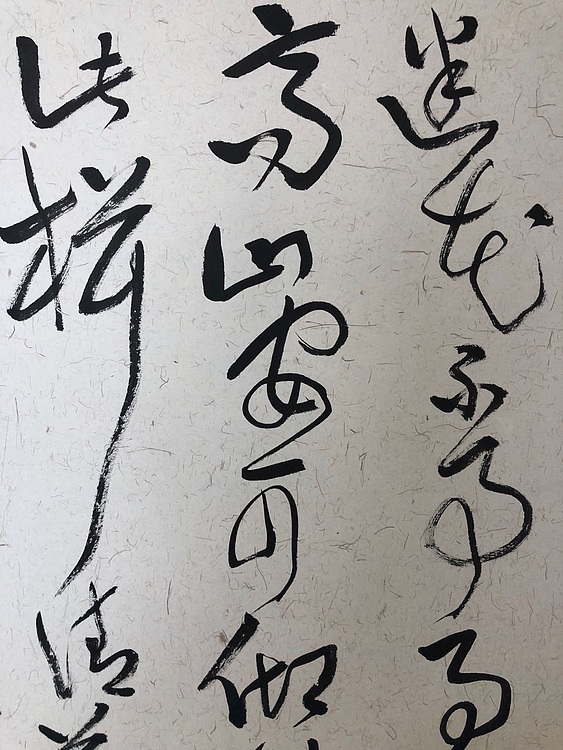 迷花不事君
高山安可仰
此揖清